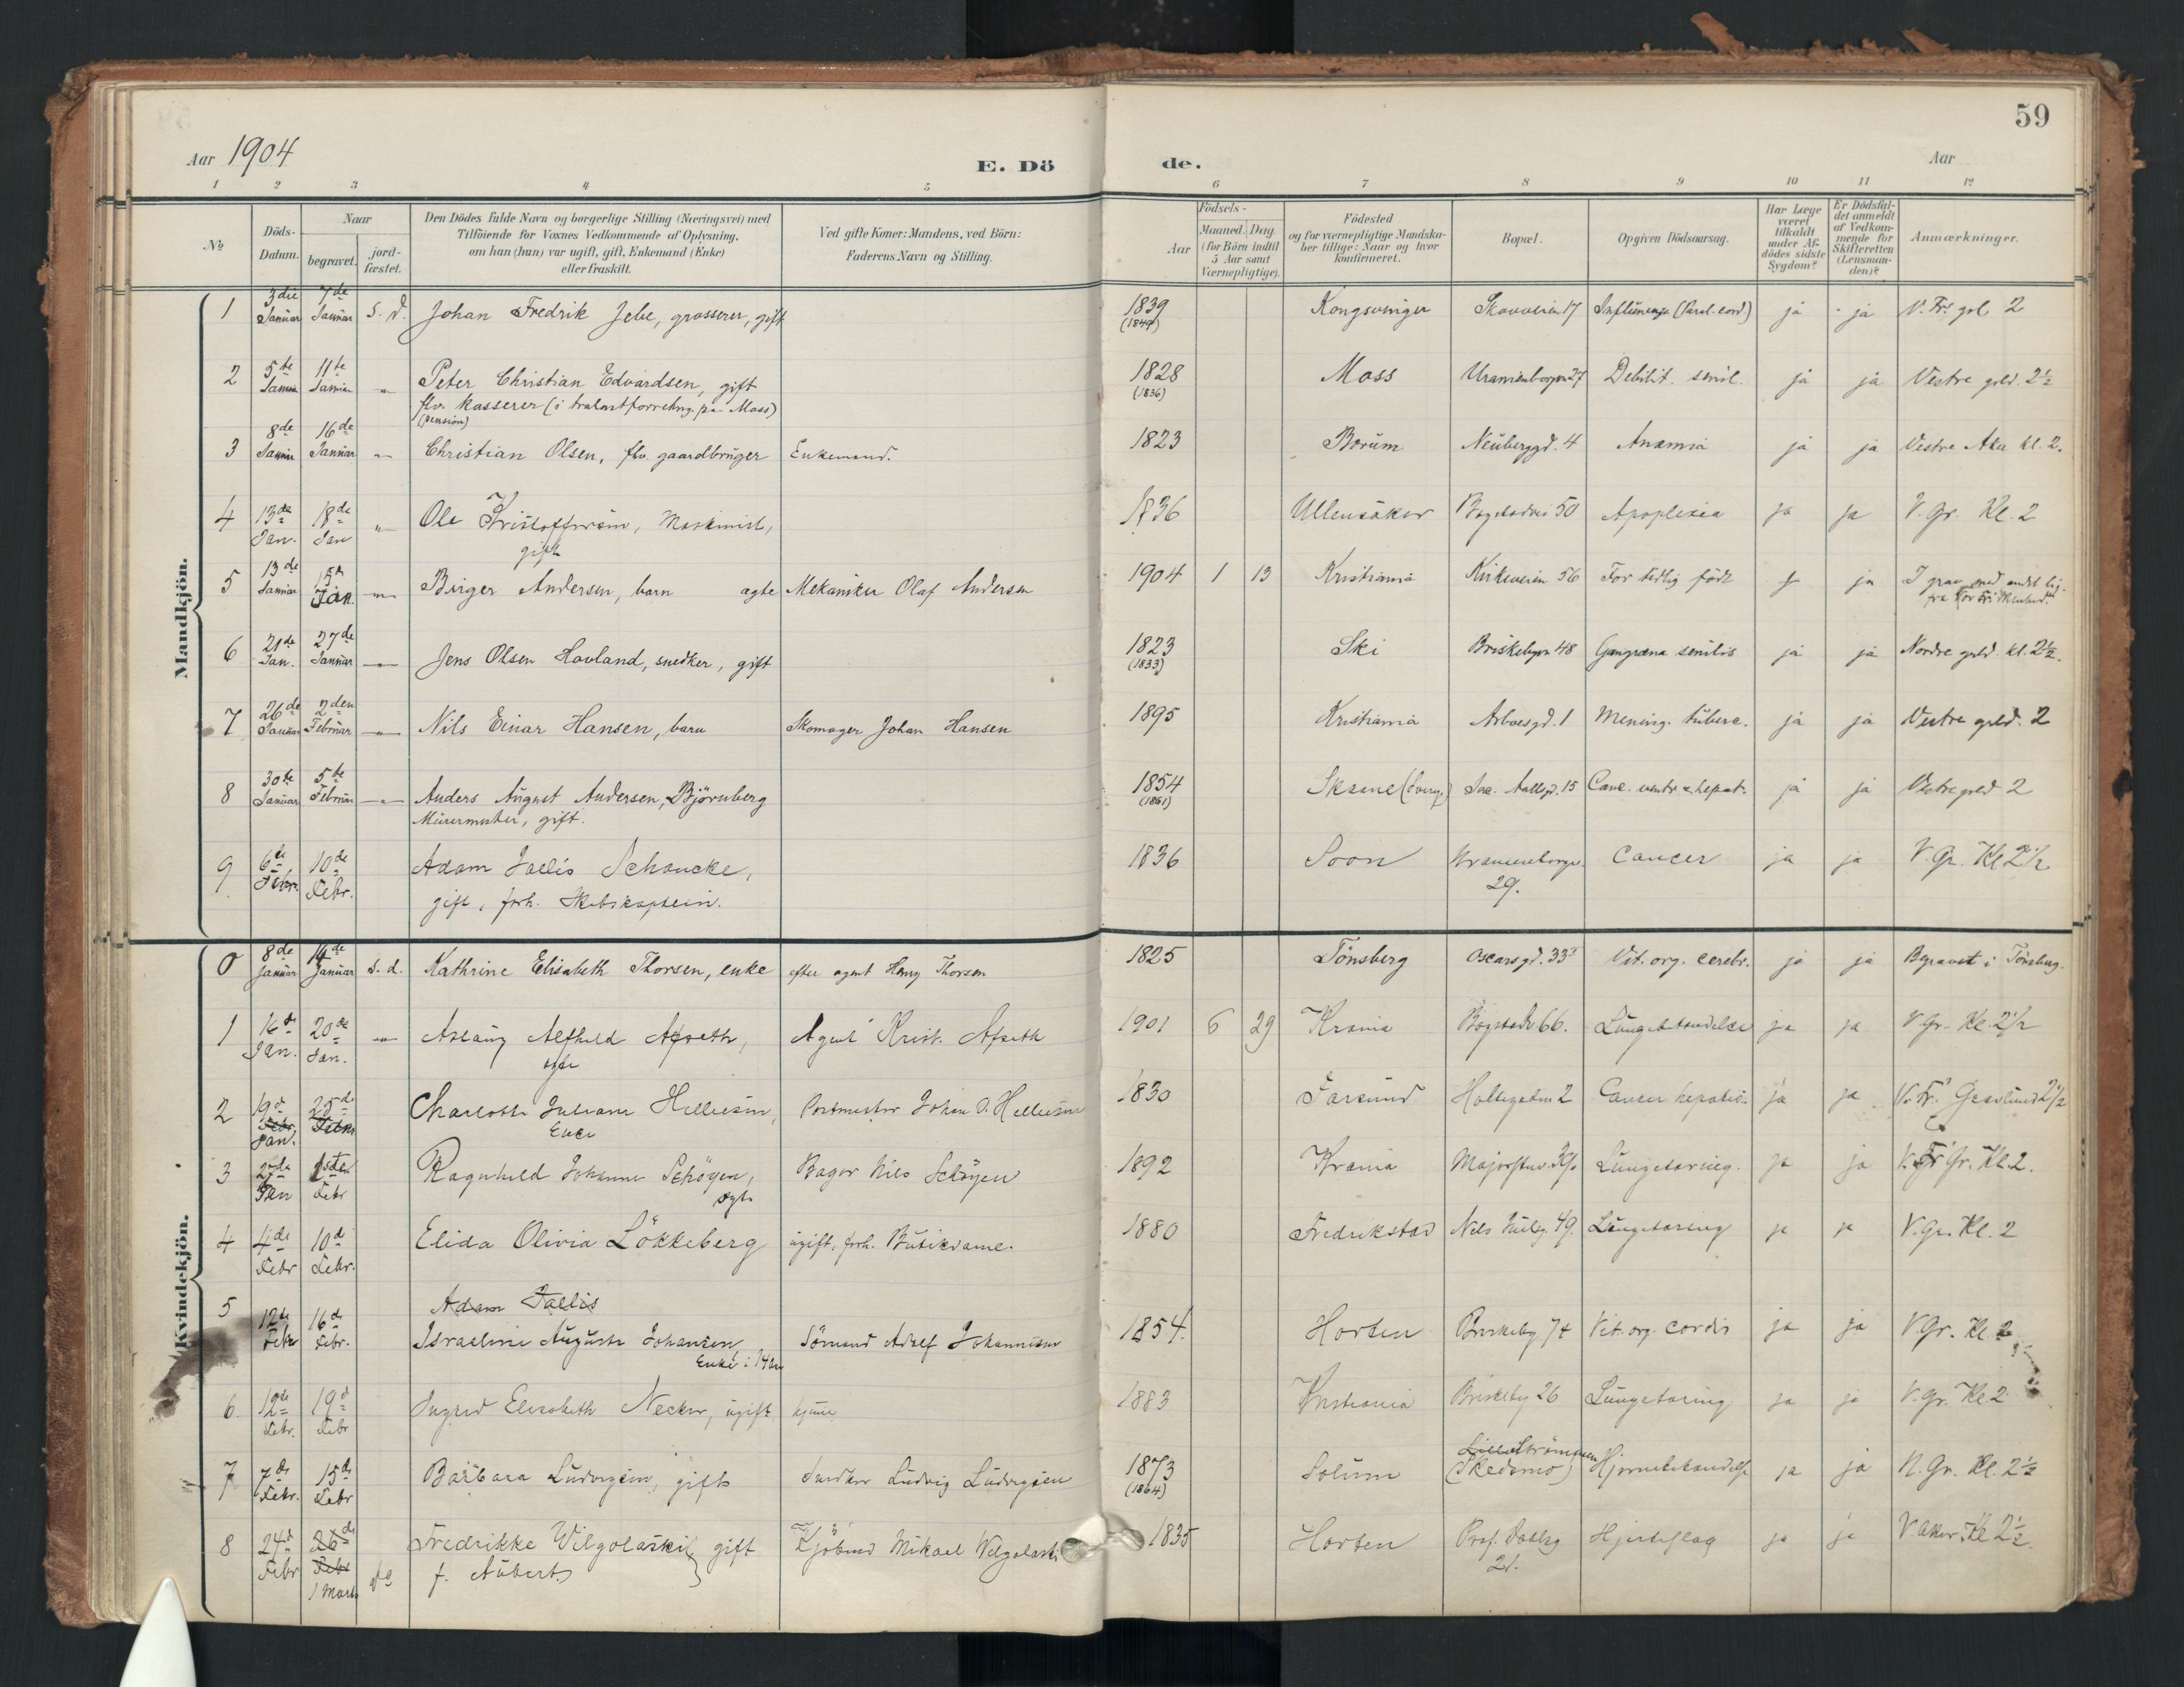 59
Aar 1904
E. Dö
de.
Aar
1 2 3 4 5 6 7 8 9 10 11 12
No
Döds-Datum.
Naar
begravet.
jord-fæstet.
Den Dödes fulde Navn og borgerlige Stilling (Næringsvei) med
Tilföiende for Voxnes Vedkommende af Oplysning,
om han (hun) var ugift, gift, Enkemand (Enke)
eller fraskilt.
Ved gifte Koner: Mandens, ved Börn:
Faderens Navn og Stilling.
Födsels-
Aar
Maaned. Dag.
(for Börn indtil
5 Aar samt
Værnepligtige).
Födested
og for værnepligtige Mandska-
ber tillige: Naar og hvor
konfirmeret.
Bopæl.
Opgiven Dödsaarsag.
Har Læge
været
tilkaldt
under Af-
dödes sidste
Sygdom?
Er Dödsfal-
det anmeldt
af Vedkom-
mende for
Skifteretten
(Lensman-
den)?
Anmærkninger.
Mandkjön.
1 3die Januar 7de Januar s. d. Johan Fredrik Jebe, grosserer, gift 1839 Kongsvinger Skovveien 17 Influenza ja ja 2
(1849)
2 5te Januar 11te Januar Peter Christian Edvardsen, gift 1828 Moss Uranienborgv 27 Debilit. senil. ja ja Vestre grld. 2½
flv. kasserer (i trælastforretng. paa Moss) (1836)
(pension)
3 8de Januar 16de Januar Christian Olsen, flv. gaardbruger Enkemand. 1823 Bærum Neuberggd. 4 Anæmia ja ja Vestre Aker kl. 2.
4 13de Jan. 18de Jan Ole Kristoffersen, Maskinist, 1836 Ullensaker Bogstadvei 50 Apoplexia ja ja V. Gr. Kl. 2
gift
5 13de Januar Jan. Birger Andersen, barn ægte Mekaniker Olaf Andersen 1904 1 13 Kristiania Kirkeveien 56 For tidlig födt ja I grav med andet lig
6 21de Jan. 27de Januar Jens Olsen Hovland, snedker, gift 1823 Ski Briskebyvn 48 Gangræna senilis ja ja Nordre grld. kl. 2½.
(1833)
7 26de Januar 2den Februar Nils Einar Hansen, barn Skomager Johan Hansen 1895 Kristiania Arbosgd. 1 Mening. tuberc. ja ja Vestre grld. 2
8 30te Januar 5te Februar Anders August Andersen, Björnberg 1854 Skaane (Sverige) Jac. Aallsgd. 15 Canc. ventr & hepat. ja ja Vestre grld 2
Murermester, gift. (1861)
9 6te Febr. 10de Febr. Adam Schancke, 1836 Soon Uranienborgv. 29. Cancer ja ja V. Gr. Kl 2½
gift, forh. Skibskaptein.
Kvindekjön.
0 8de Januar 14de Januar s. d. Kathrine Elisabeth Thorsen, enke efter agent Henry Thorsen 1825 Tönsberg Oscarsgd. 33 Vit. org. cerebr. ja ja Begravet i Tönsberg.
1 Jan. 20de Jan. Aslaug Alfhild Afseth, Agent Krist. Afseth 1901 6 29 Krania Bogstadv 66. Lungebetændelse ja ja V Gr. Kl. 2½
ægte
2 19de Febr. Jan. 25de Febr. Charlotte Juliane Helliesen, Postmester Johan A. Helliesen 1830 Farsund Holtegaten 2 Cancer hepatis. ja ja V. Fr. Gravlund 2½
Enke
3 27de Jan 1ste Febr Ragnhild Johanne Schöyen, Bager Nils Schöyen 1892 Krania Majorstuv. Lungetæring. ja ja V. Gr. Kl. 2.
ægte
4 4de Febr 10de Febr. Elida Olivia Lökkeberg ugift, forh. Butikdame. 1880 Fredrikstad Nils Juelsg. 49. Lungetæring ja ja V. Gr. Kl. 2
5 Adam
12te Febr 16de Febr. Israeline Augusta Johansen Sömand Adolf Johannesen 1854. Horten Briskeby 74 Vit. org. cordis ja ja V Gr. Kl 2
Enke i 14 aar
6. 12te Febr. 19de Febr Ingrid Elisabeth Necker, ugift hjemme 1883 Kristiania Briskeby 26 Lungetæring ja ja V. Gr. Kl 2
7 7de Febr. 15de Febr Barbara Ludvigsen, gift Snedker Ludvig Ludvigsen 1873 Solum Lilleströmmen (Skedsmo) Hjernebetændelse ja ja N. Gr. Kl. 2½
(1864)
8 24de Febr 26de Febr 1 Marts Fredrikke Wilgolaski gift Kjöbmd Mikael Wilgolaski 1835 Horten Prof. Dahlsg 21. Hjerteslag ja ja V. Aker Kl 2½.
f. Aubert